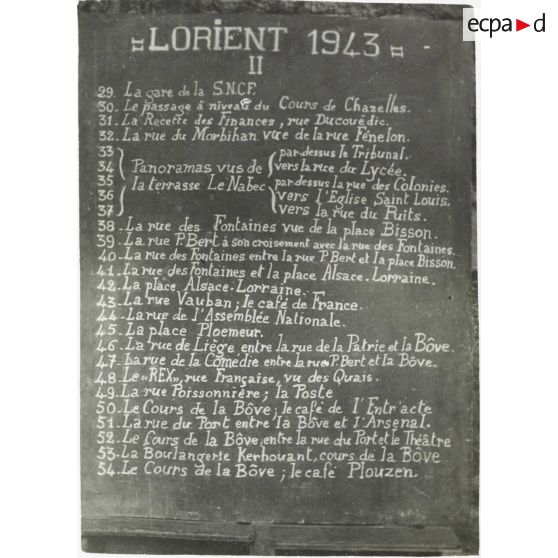 ecpa►d
LORIENT 1943
II
29. La gare de la S.N.C.F.
30. Le passage à niveau du Cours de Chazelles.
31. La Recette des Finances, rue Ducouëdic.
32. La rue du Morbihan vue de la rue Fénelon.
33 par dessus le Tribunal.
34 Panoramas vus de vers la rue du Lycée.
35 la terrasse Le Nabec par dessus la rue des Colonies.
36 vers l'Eglise Saint Louis.
37 vers la rue du Puits.
38 - La rue des Fontaines vue de la place Bisson.
39. La rue P. Bert à son croisement avec la rue des Fontaines.
40 - La rue des Fontaines entre la rue P. Bert et la place Bisson.
41. La rue des Fontaines et la place Alsace-Lorraine.
42. La place Alsace-Lorraine.
43. La rue Vauban ; le café de France.
44 - La rue de l'Assemblée Nationale.
45. La place Ploemeur.
46 - La rue de Liège entre la rue de la Patrie et la Bôve.
47. La rue de la Comédie entre la rue P. Bert et la Bôve.
48. Le "REX", rue Française, vu des Quais.
49. La rue Poissonnière ; la Poste
50. Le Cours de la Bôve ; le café de l'Entr'acte
51. La rue du Port entre la Bôve et l'Arsenal.
52. Le Cours de la Bôve, entre la rue du Port et le Théâtre
53 - La Boulangerie Kerhouant, cours de la Bôve
54. Le Cours de la Bôve ; le café Plouzen.